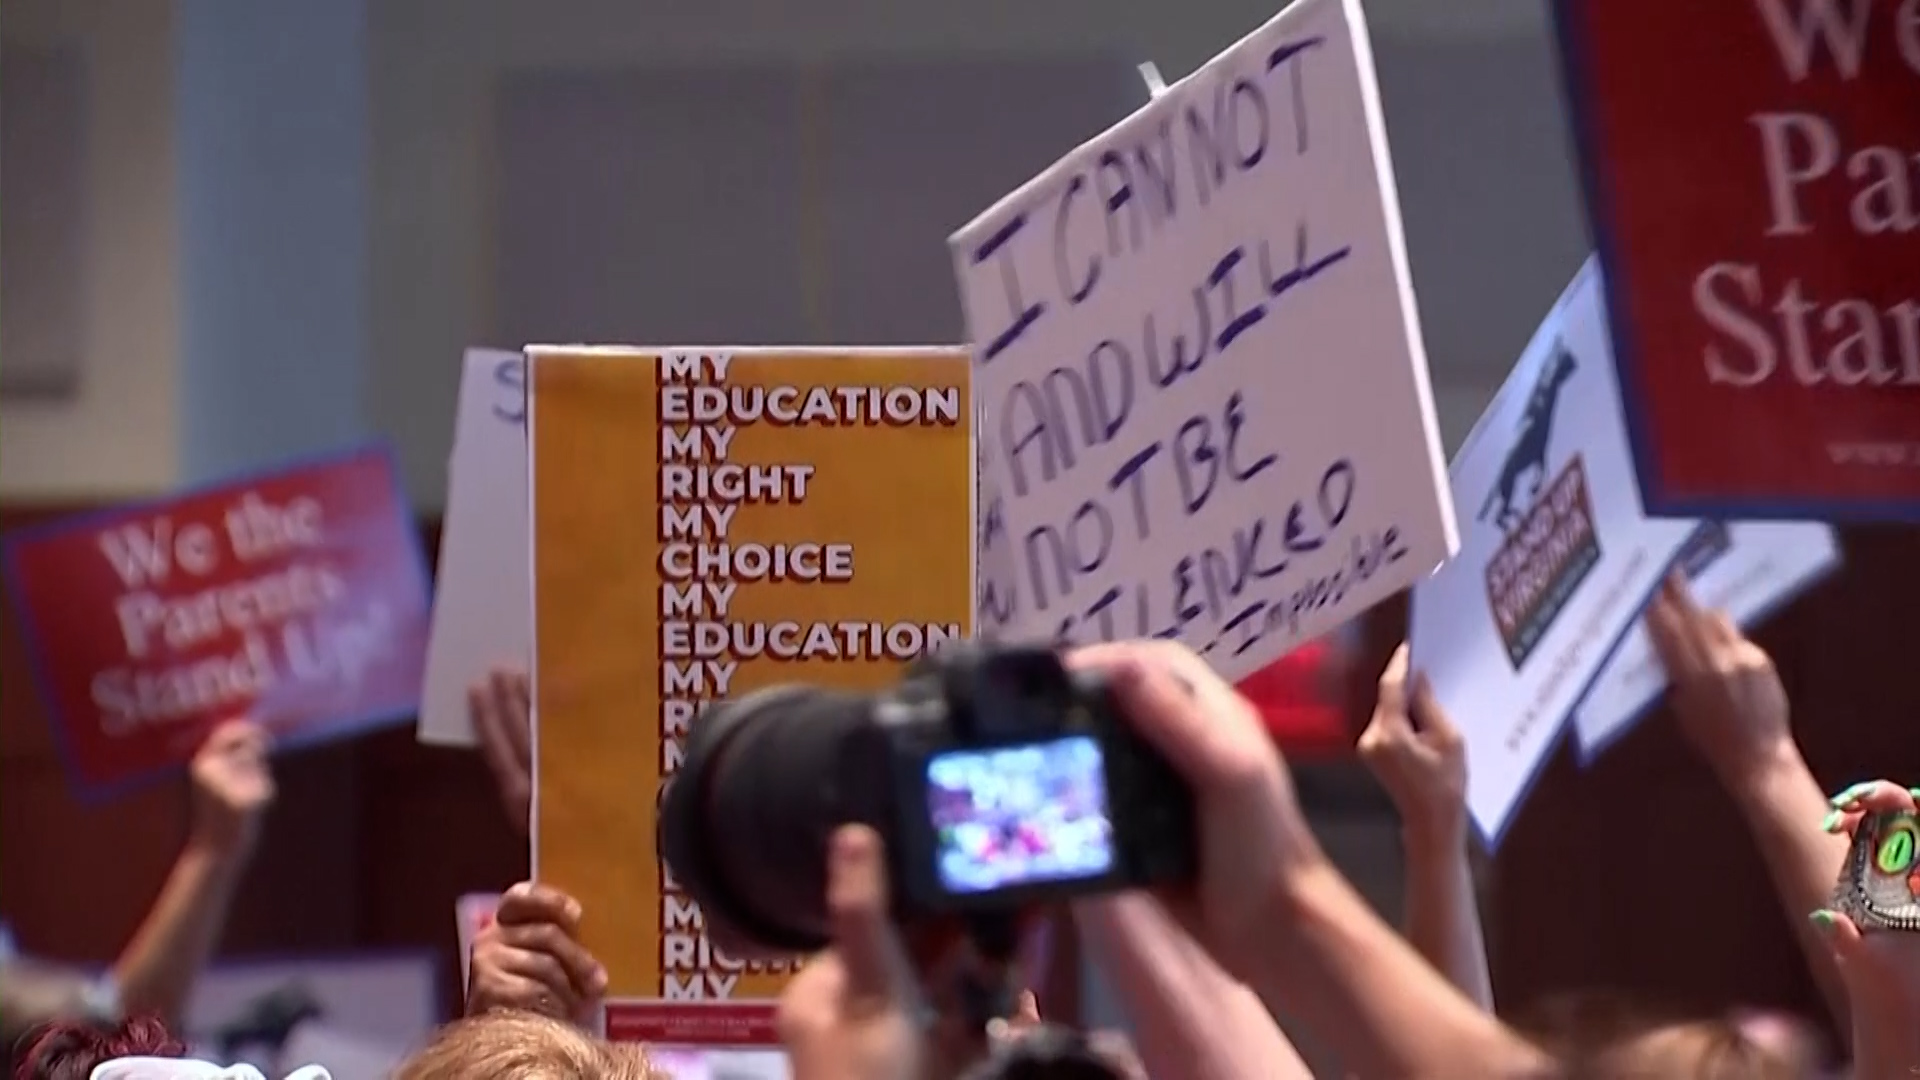 We the
Parents
Stand Up!
S
MY
EDUCATION
MY
RIGHT
MY
CHOICE
MY
EDUCATION
MY
MY
I CANNOT
AND WILL
NOT BE
SILENCED
- Impossible
STAND UP
VIRGINIA
We
Pa
Stan
www.